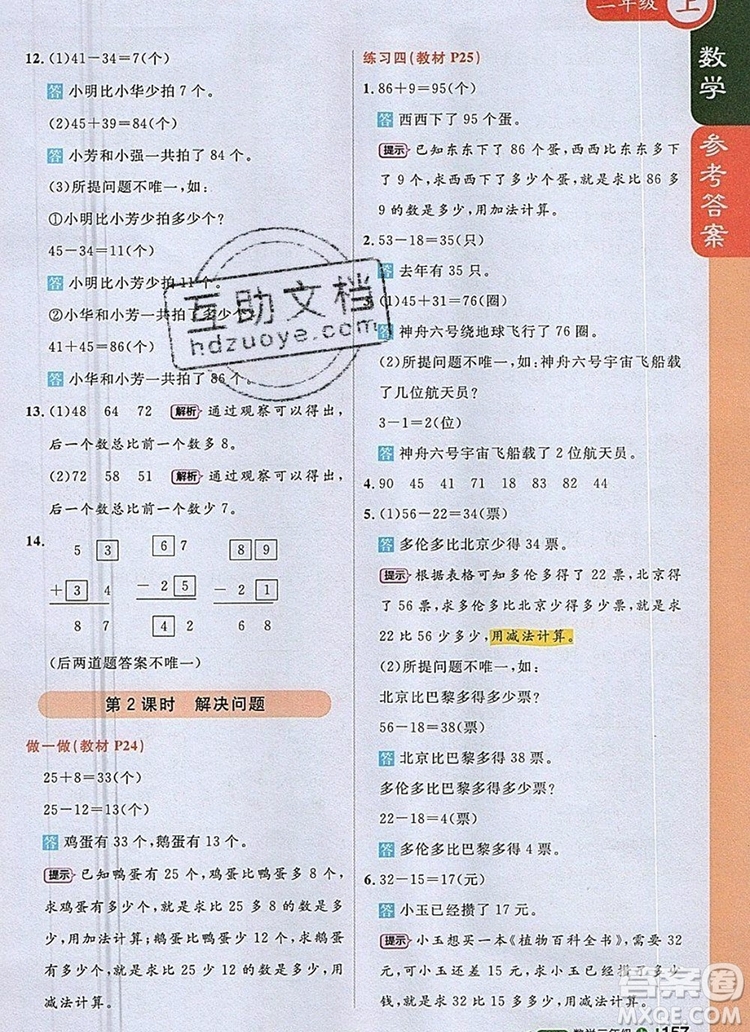 二年级 上
数学
参考答案
12. (1)41-34=7(个)
答 小明比小华少拍 7 个。
(2)45+39=84(个)
答 小芳和小强一共拍了 84 个。
(3)所提问题不唯一,如:
①小明比小芳少拍多少个?
45-34=11(个)
答 小明比小芳少拍 11 个。
②小华和小芳一共拍了多少个?
41+45=86(个)
答 小华和小芳一共拍了 86 个。
13. (1)48 64 72 解析 通过观察可以得出,
后一个数总比前一个数多 8。
(2)72 58 51 解析 通过观察可以得出,
后一个数总比前一个数少 7。
14.
5 3 6 7 8 9
+ 3 4 - 2 5 - 2 1
8 7 4 2 6 8
(后两道题答案不唯一)
第 2 课时 解决问题
做一做(教材 P24)
25+8=33(个)
25-12=13(个)
答 鸡蛋有 33 个,鹅蛋有 13 个。
提示 已知鸭蛋有 25 个,鸡蛋比鸭蛋多 8 个,
求鸡蛋有多少个,就是求比 25 多 8 的数是多
少,用加法计算;鹅蛋比鸭蛋少 12 个,求鹅蛋
有多少个,就是求比 25 少 12 的数是多少,用
减法计算。
练习四(教材 P25)
1. 86+9=95(个)
答 西西下了 95 个蛋。
提示 已知东东下了 86 个蛋,西西比东东多下
了 9 个,求西西下了多少个蛋,就是求比 86 多
9 的数是多少,用加法计算。
2. 53-18=35(只)
答 去年有 35 只。
3. (1)45+31=76(圈)
答 神舟六号绕地球飞行了 76 圈。
(2)所提问题不唯一,如:神舟六号宇宙飞船载
了几位航天员?
3-1=2(位)
答 神舟六号宇宙飞船载了 2 位航天员。
4. 90 45 41 71 18 83 82 44
5. (1)56-22=34(票)
答 多伦多比北京少得 34 票。
提示 根据表格可知多伦多得了 22 票,北京得
了 56 票,求多伦多比北京少得多少票,就是求
22 比 56 少多少,用减法计算。
(2)所提问题不唯一,如:
北京比巴黎多得多少票?
56-18=38(票)
答 北京比巴黎多得 38 票。
多伦多比巴黎多得多少票?
22-18=4(票)
答 多伦多比巴黎多得 4 票。
6. 32-15=17(元)
答 小玉已经攒了 17 元。
提示 小玉想买一本《植物百科全书》,需要 32
元,可小玉还差 15 元,求小玉已经攒了多少
元,就是求比 32 少 15 的数是多少,用减法
157
互助文档
hdzuoye.com
答案圈
MXQE.COM